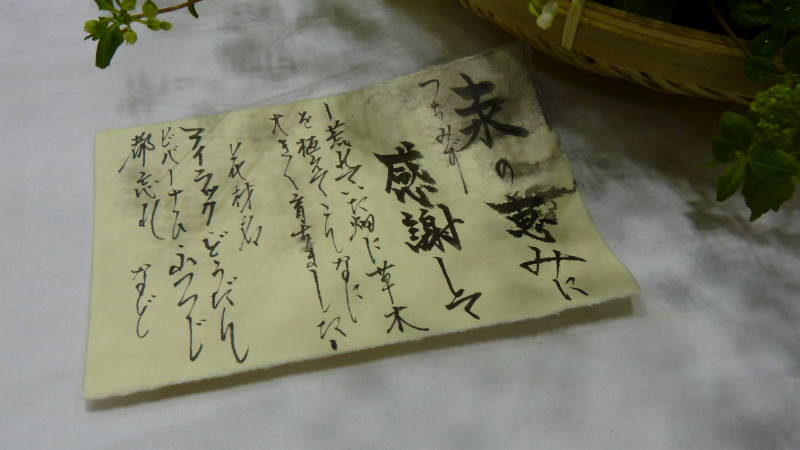 土水の恵みに
つちみず
感謝して
荒れていた畑に草木
を植えてこんなに
大きく育ちました。
花材名
ライラック どうだん
ビバーナム 山つつじ
都忘れ など